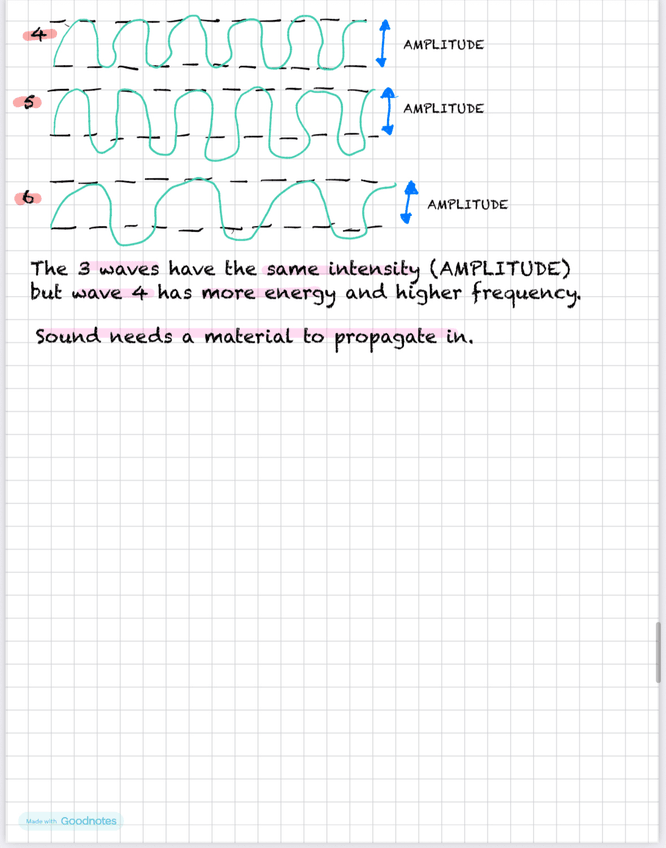 4 AMPLITUDE
5 AMPLITUDE
6 AMPLITUDE
The 3 waves have the same intensity (AMPLITUDE)
but wave 4 has more energy and higher frequency.
Sound needs a material to propagate in.
Made with Goodnotes